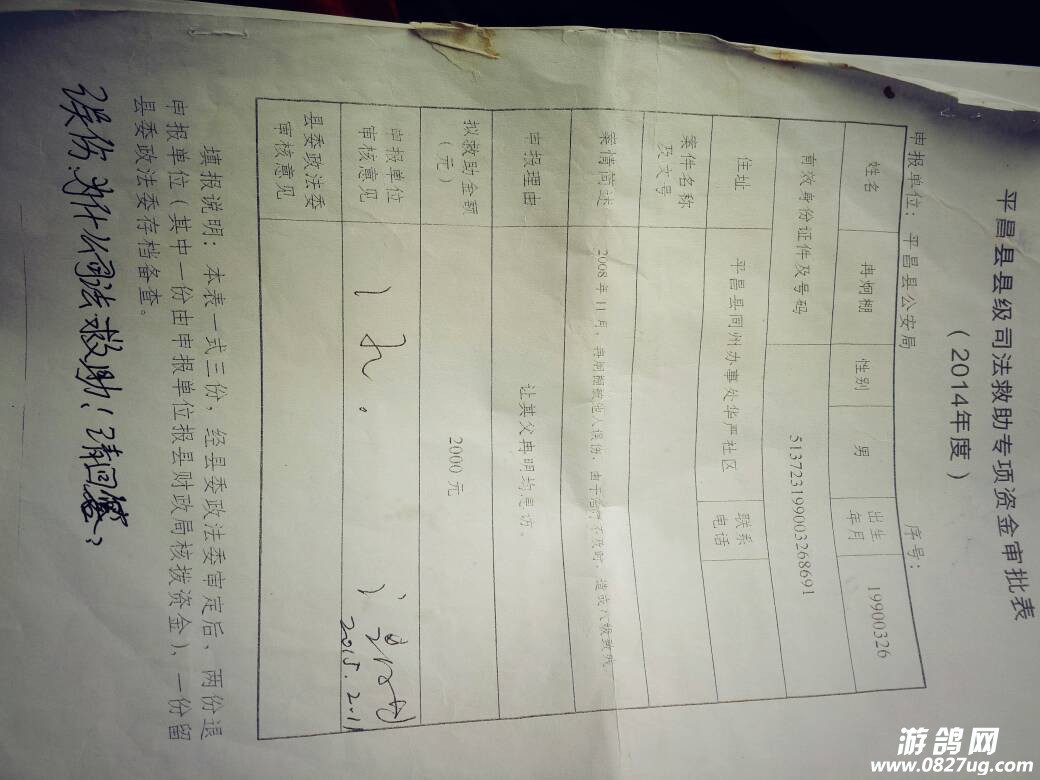 平昌县县级司法救助专项资金审批表
（2014年度）
申报单位：平昌县公安局 序号：
姓名 冉炯棚 性别 男 出生年月 19900326
有效身份证件及号码 513723199003268691
住址 平昌县同州办事处华严社区 联系电话
案件名称及文号
案情简述 2008年11月，冉炯棚被他人误伤，由于治疗不及时，造成八级致残
申报理由 让其父冉明均息访。
拟救助金额（元） 2000元
申报单位审核意见
2015.2.11
县委政法委审核意见
填报说明：本表一式三份，经县委政法委审定后，两份退
申报单位（其中一份由申报单位报县财政局核拨资金），一份留
县委政法委存档备查。
误伤为什么司法救助？请回答
游鸽网
www.0827ug.com